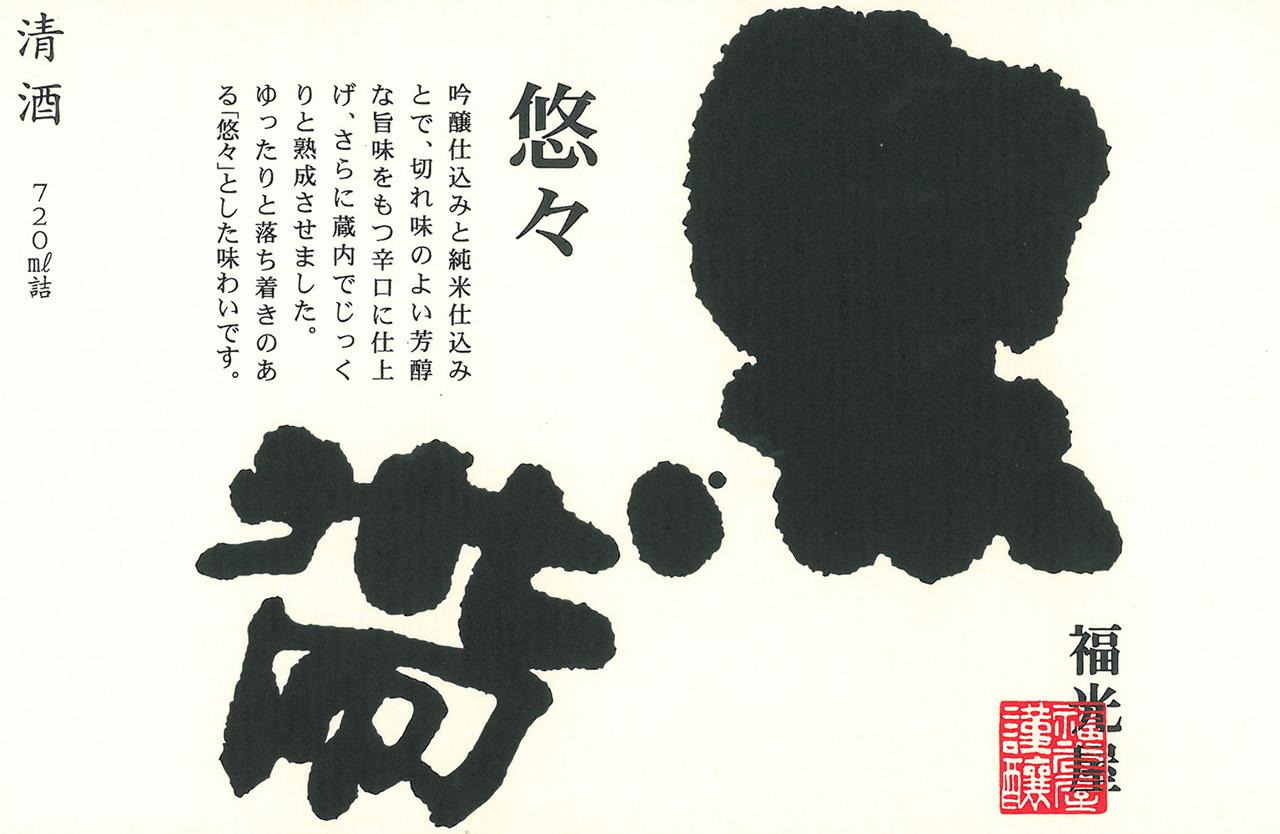 黒帯
福光屋
福光屋
謹醸
悠々
吟醸仕込みと純米仕込み
とで、切れ味のよい芳醇
な旨味をもつ辛口に仕上
げ、さらに蔵内でじっく
りと熟成させました。
ゆったりと落ち着きのあ
る「悠々」とした味わいです。
清酒 720㎖詰